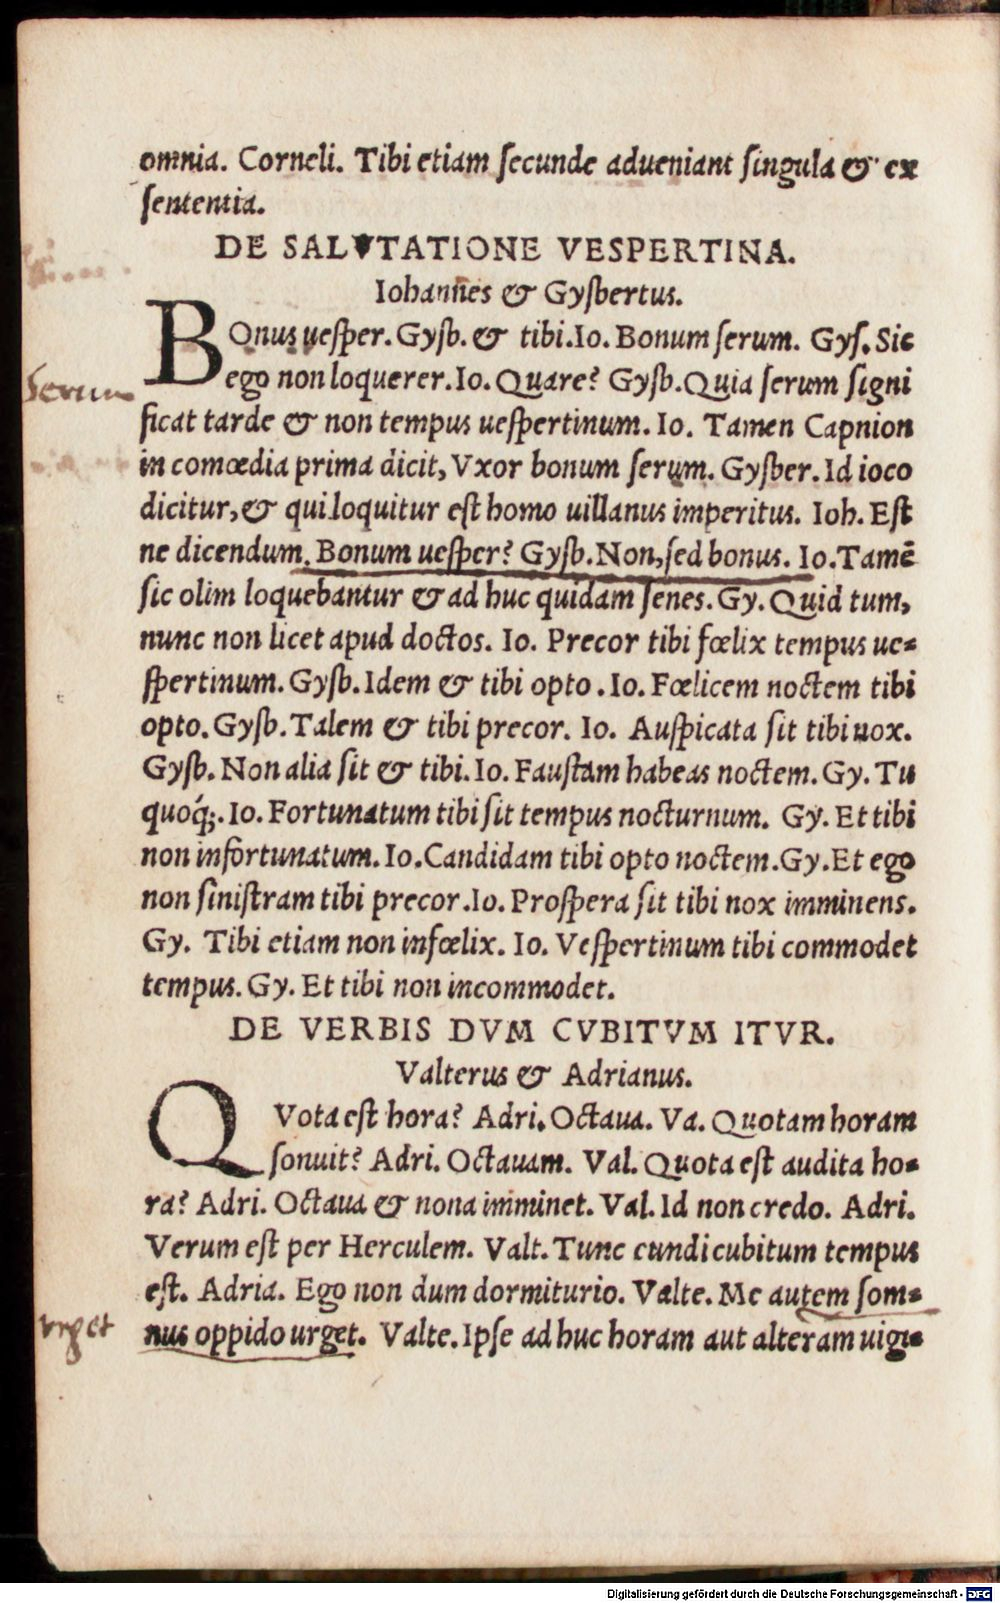 omnia. Corneli. Tibi etiam ſecunde adueniant ſingula & ex
ſententia.
DE SALVTATIONE VESPERTINA.
Iohannes & Gyſbertus.
BOnus ueſper. Gyſb. & tibi. Io. Bonum ſerum. Gyſ. Sic
Serum
ego non loquerer. Io. Quare? Gyſb. Quia ſerum ſigni
ficat tarde & non tempus ueſpertinum. Io. Tamen Capnion
in comœdia prima dicit, Vxor bonum ſerum. Gyſber. Id ioco
dicitur, & qui loquitur eſt homo uillanus imperitus. Ioh. Eſt
ne dicendum. Bonum ueſper? Gyſb. Non, ſed bonus. Io. Tamē
ſic olim loquebantur & ad huc quidam ſenes. Gy. Quid tum,
nunc non licet apud doctos. Io. Precor tibi fœlix tempus ue⸗
ſpertinum. Gyſb. Idem & tibi opto. Io. Fœlicem noctem tibi
opto. Gyſb. Talem & tibi precor. Io. Auſpicata ſit tibi nox.
Gyſb. Non alia ſit & tibi. Io. Fauſtam habeas noctem. Gy. Tu
quoq́;. Io. Fortunatum tibi ſit tempus nocturnum. Gy. Et tibi
non infortunatum. Io. Candidam tibi opto noctem. Gy. Et ego
non ſiniſtram tibi precor. Io. Proſpera ſit tibi nox imminens.
Gy. Tibi etiam non infœlix. Io. Veſpertinum tibi commodet
tempus. Gy. Et tibi non incommodet.
DE VERBIS DVM CVBITVM ITVR.
Valterus & Adrianus.
QVota eſt hora? Adri. Octaua. Va. Quotam horam
ſonuit? Adri. Octauam. Val. Quota eſt audita ho⸗
ra? Adri. Octaua & nona imminet. Val. Id non credo. Adri.
Verum eſt per Herculem. Valt. Tunc eundi cubitum tempus
eſt. Adria. Ego non dum dormiturio. Valte. Me autem ſom⸗
vrget
nus oppido urget. Valte. Ipſe ad huc horam aut alteram uigi⸗
Digitalisierung gefördert durch die Deutsche Forschungsgemeinschaft - DFG